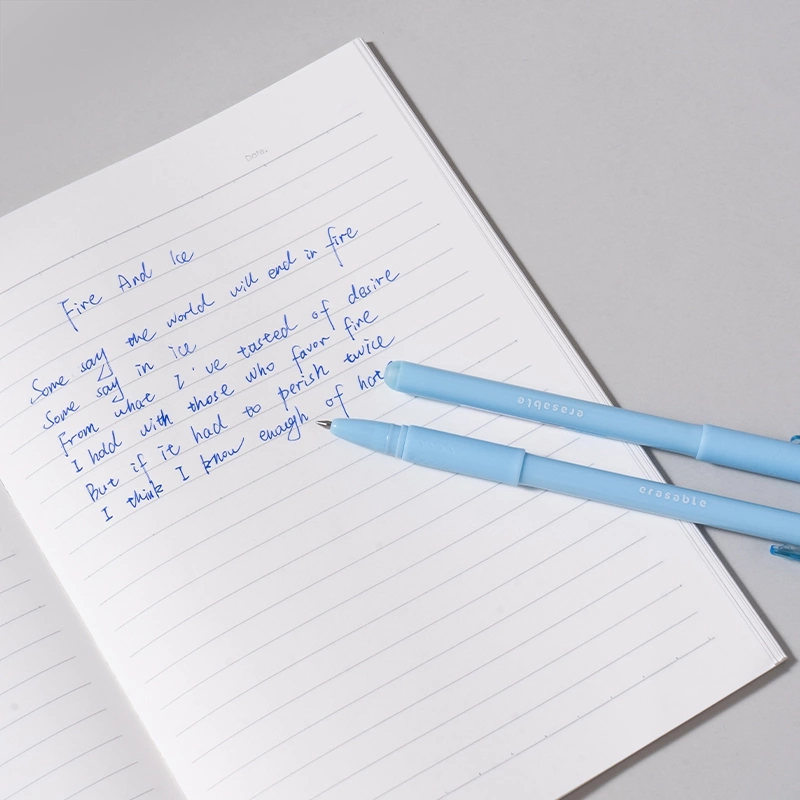 Date:
Fire And Ice
Some say the world will end in fire
Some say in ice
From what I've tasted of desire
I hold with those who favor fire
But if it had to perish twice
I think I know enough of hot
erasable
erasable